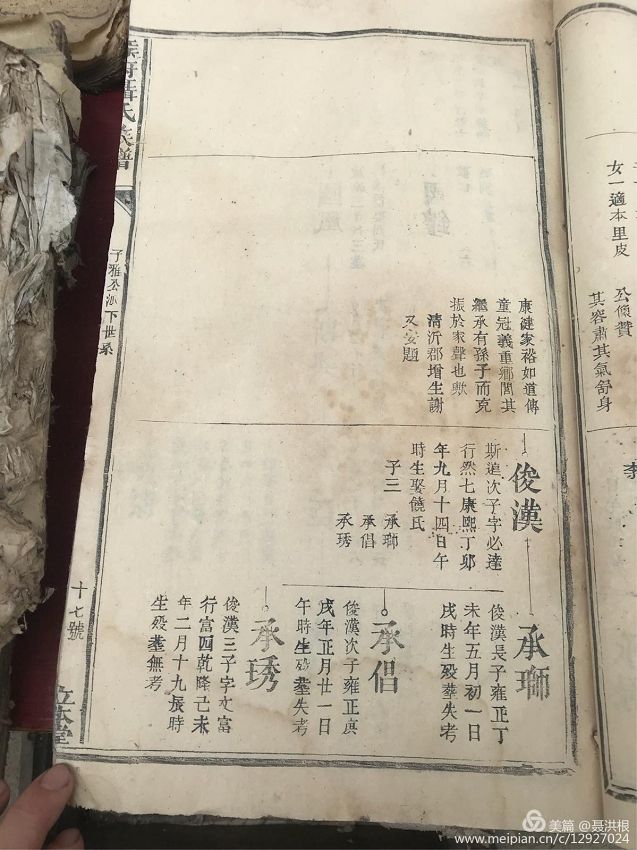 女一適本里皮
公傾贊
其容肅其氣舒身
康健家裕如道傳
童冠義重鄉閭其
繼承有孫子而克
振於家聲也歟
清沂郡增生謝
又安題
俊漢
斯追次子字必達
行然七康熙丁卯
年九月十四日午
時生娶饒氏
子三
承瑡
承倡
承琇
承瑡
俊漢長子雍正丁
未年五月初一日
戌時生殁塟失考
承倡
俊漢次子雍正庚
戌年正月廿一日
午時生殁塟失考
承琇
俊漢三子字文富
行富四乾隆己未
年二月十九辰時
生殁塟無考
聶氏族譜
子雅公派下世系
十七號
美篇 @聂洪根
www.meipian.cn/c/12927024